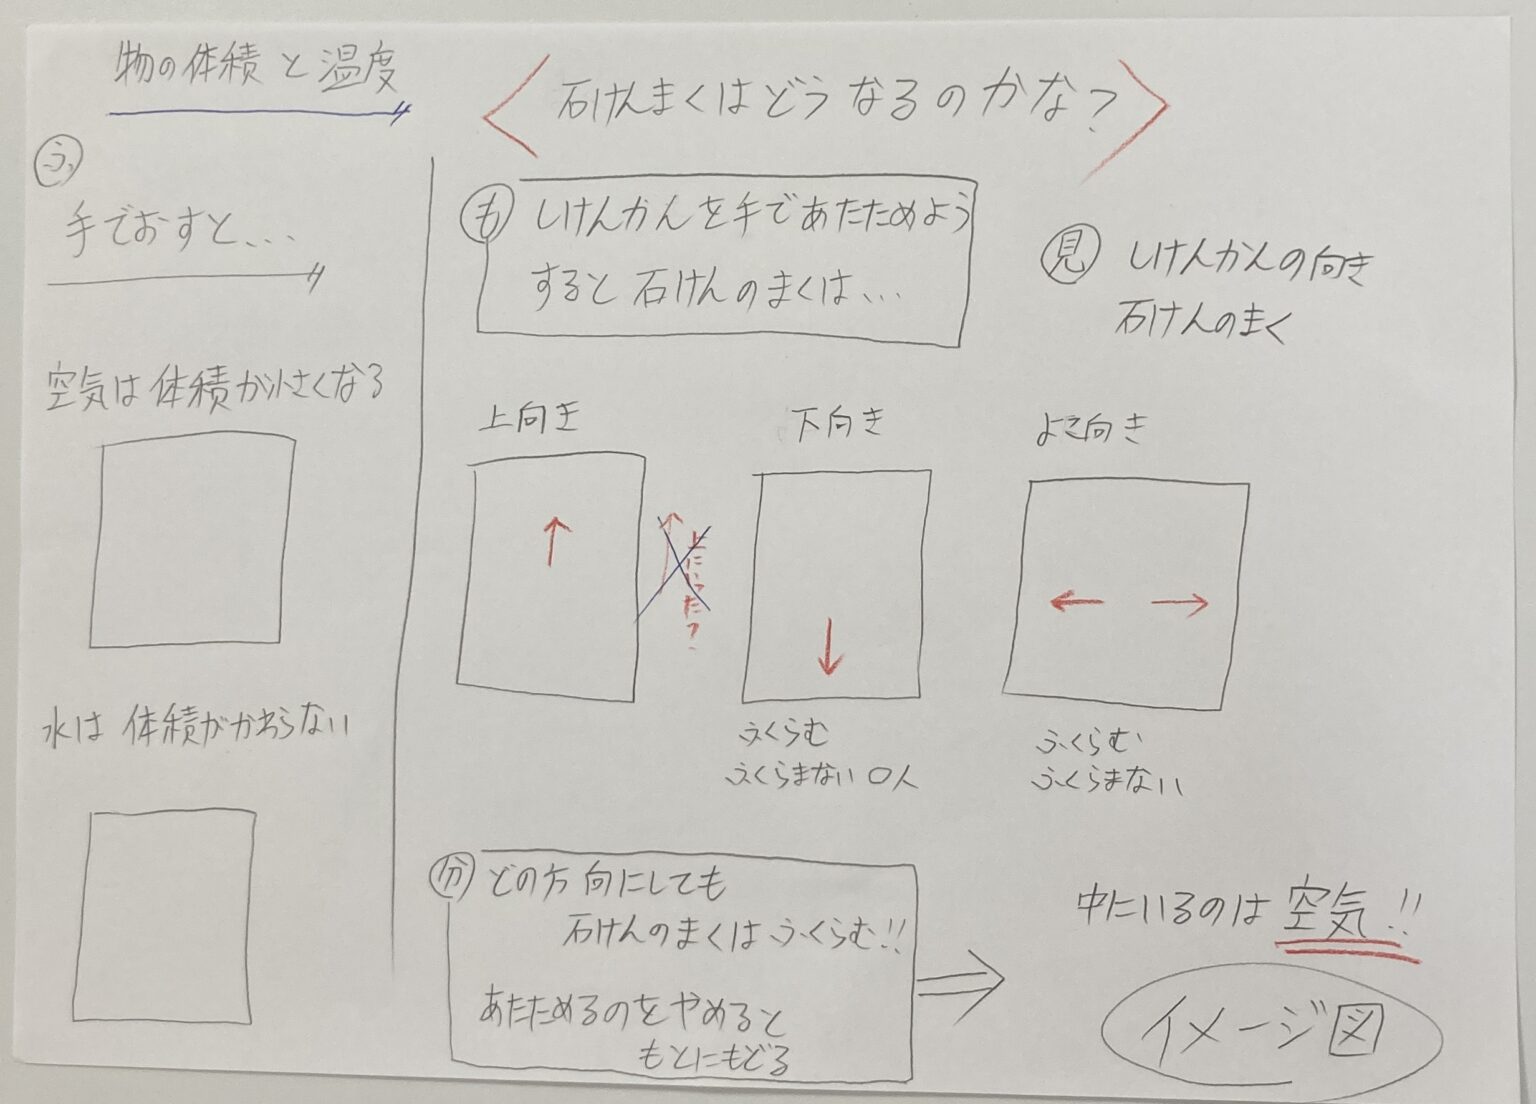 物の体積と温度
ふ
手でおすと...
空気は体積が小さくなる
水は体積がかわらない
〈石けんまくはどうなるのかな?〉
も
しけんかんを手であたためよう
すると石けんのまくは...
見
しけんかんの向き
石けんのまく
上向き
上にいった?
下向き
ふくらむ
ふくらまない 0人
よこ向き
ふくらむ
ふくらまない
分
どの方向にしても
石けんのまくはふくらむ!!
あたためるのをやめると
もとにもどる
中にいるのは空気!!
イメージ図